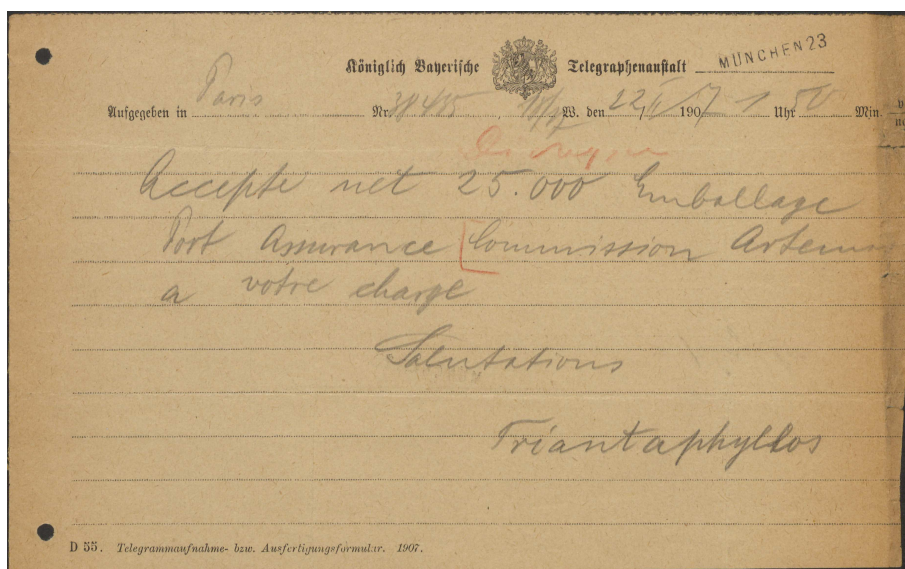 Königlich Bayerische Telegraphenanstalt MÜNCHEN 23
Aufgegeben in Paris Nr. 38485 W. den 22/ 1907 1 Uhr 50 Min.
Accepte net 25.000 Emballage
Port Assurance [Commission Artemis
a votre charge
Salutations
Triantaphyllos
D 55. Telegrammaufnahme- bzw. Ausfertigungsformular. 1907.